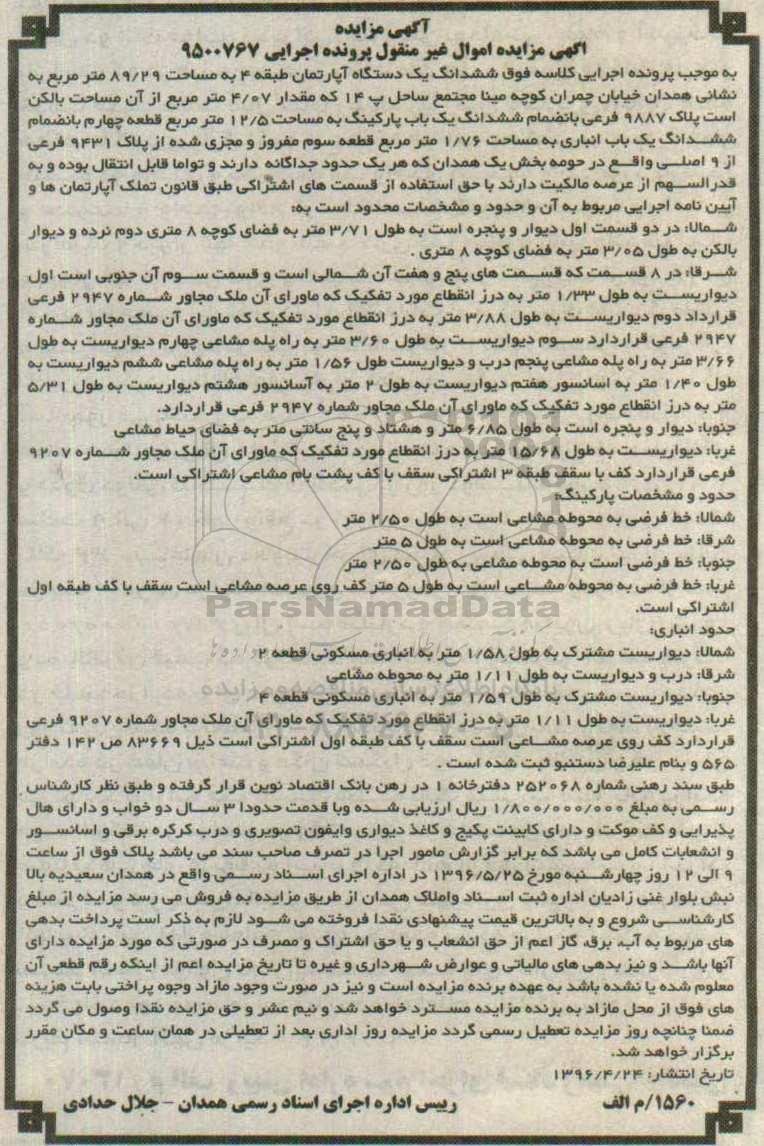 آگهی مزایده
اگهی مزایده اموال غیر منقول پرونده اجرایی ۹۵۰۰۷۶۷
به موجب پرونده اجرایی کلاسه فوق ششدانگ یک دستگاه آپارتمان طبقه ۴ به مساحت ۸۹/۲۹ متر مربع به
نشانی همدان خیابان چمران کوچه مینا مجتمع ساحل پ ۱۴ که مقدار ۴/۰۷ متر مربع از آن مساحت بالکن
است پلاک ۹۸۸۷ فرعی بانضمام ششدانگ یک باب پارکینگ به مساحت ۱۲/۵ متر مربع قطعه چهارم بانضمام
ششدانگ یک باب انباری به مساحت ۱/۷۶ متر مربع قطعه سوم مفروز و مجزی شده از پلاک ۹۴۳۱ فرعی
از ۹ اصلی واقع در حومه بخش یک همدان که هر یک حدود جداگانه دارند و تواما قابل انتقال بوده و به
قدرالسهم از عرصه مالکیت دارند با حق استفاده از قسمت های اشتراکی طبق قانون تملک آپارتمان ها و
آیین نامه اجرایی مربوط به آن و حدود و مشخصات محدود است به:
شمالا: در دو قسمت اول دیوار و پنجره است به طول ۳/۷۱ متر به فضای کوچه ۸ متری دوم نرده و دیوار
بالکن به طول ۳/۰۵ متر به فضای کوچه ۸ متری .
شرقا: در ۸ قسمت که قسمت های پنج و هفت آن شمالی است و قسمت سوم آن جنوبی است اول
دیواریست به طول ۱/۳۳ متر به درز انقطاع مورد تفکیک که ماورای آن ملک مجاور شماره ۲۹۴۷ فرعی
قرارداد دوم دیواریست به طول ۳/۸۸ متر به درز انقطاع مورد تفکیک که ماورای آن ملک مجاور شماره
۲۹۴۷ فرعی قراردارد سوم دیواریست به طول ۳/۶۰ متر به راه پله مشاعی چهارم دیواریست به طول
۳/۶۶ متر به راه پله مشاعی پنجم درب و دیواریست طول ۱/۵۶ متر به راه پله مشاعی ششم دیواریست به
طول ۱/۴۰ متر به اسانسور هفتم دیواریست به طول ۲ متر به آسانسور هشتم دیواریست به طول ۵/۳۱
متر به درز انقطاع مورد تفکیک که ماورای آن ملک مجاور شماره ۲۹۴۷ فرعی قراردارد.
جنوبا: دیوار و پنجره است به طول ۶/۸۵ متر و هشتاد و پنج سانتی متر به فضای حیاط مشاعی
غربا: دیواریست به طول ۱۵/۶۸ متر به درز انقطاع مورد تفکیک که ماورای آن ملک مجاور شماره ۹۲۰۷
فرعی قراردارد کف با سقف طبقه ۳ اشتراکی سقف با کف پشت بام مشاعی اشتراکی است.
حدود و مشخصات پارکینگ:
شمالا: خط فرضی به محوطه مشاعی است به طول ۲/۵۰ متر
شرقا: خط فرضی به محوطه مشاعی است به طول ۵ متر
جنوبا: خط فرضی است به محوطه مشاعی به طول ۲/۵۰ متر
غربا: خط فرضی به محوطه مشاعی است به طول ۵ متر کف روی عرصه مشاعی است سقف با کف طبقه اول
اشتراکی است.
ParsNamadData
حدود انباری:
شمالا: دیواریست مشترک به طول ۱/۵۸ متر به انباری مسکونی قطعه ۲
شرقا: درب و دیواریست به طول ۱/۱۱ متر به محوطه مشاعی
جنوبا: دیواریست مشترک به طول ۱/۵۹ متر به انباری مسکونی قطعه ۴
غربا: دیواریست به طول ۱/۱۱ متر به درز انقطاع مورد تفکیک که ماورای آن ملک مجاور شماره ۹۲۰۷ فرعی
قراردارد کف روی عرصه مشاعی است سقف با کف طبقه اول اشتراکی است ذیل ۸۳۶۶۹ ص ۱۴۲ دفتر
۵۶۵ و بنام علیرضا دستنبو ثبت شده است .
طبق سند رهنی شماره ۲۵۲۰۶۸ دفترخانه ۱ در رهن بانک اقتصاد نوین قرار گرفته و طبق نظر کارشناس
رسمی به مبلغ ۱/۸۰۰/۰۰۰/۰۰۰ ریال ارزیابی شده وبا قدمت حدودا ۳ سال دو خواب و دارای هال
پذیرایی و کف موکت و دارای کابینت پکیج و کاغذ دیواری وایفون تصویری و درب کرکره برقی و اسانسور
و انشعابات کامل می باشد که برابر گزارش مامور اجرا در تصرف صاحب سند می باشد پلاک فوق از ساعت
۹ الی ۱۲ روز چهارشنبه مورخ ۱۳۹۶/۵/۲۵ در اداره اجرای اسناد رسمی واقع در همدان سعیدیه بالا
نبش بلوار غنی زادیان اداره ثبت اسناد واملاک همدان از طریق مزایده به فروش می رسد مزایده از مبلغ
کارشناسی شروع و به بالاترین قیمت پیشنهادی نقدا فروخته می شود لازم به ذکر است پرداخت بدهی
های مربوط به آب، برق، گاز اعم از حق انشعاب و یا حق اشتراک و مصرف در صورتی که مورد مزایده دارای
آنها باشد و نیز بدهی های مالیاتی و عوارض شهرداری و غیره تا تاریخ مزایده اعم از اینکه رقم قطعی آن
معلوم شده یا نشده باشد به عهده برنده مزایده است و نیز در صورت وجود مازاد وجوه پراختی بابت هزینه
های فوق از محل مازاد به برنده مزایده مسترد خواهد شد و نیم عشر و حق مزایده نقدا وصول می گردد
ضمنا چنانچه روز مزایده تعطیل رسمی گردد مزایده روز اداری بعد از تعطیلی در همان ساعت و مکان مقرر
برگزار خواهد شد.
تاریخ انتشار: ۱۳۹۶/۴/۲۴
۱۵۶۰/م الف رییس اداره اجرای اسناد رسمی همدان - جلال حدادی